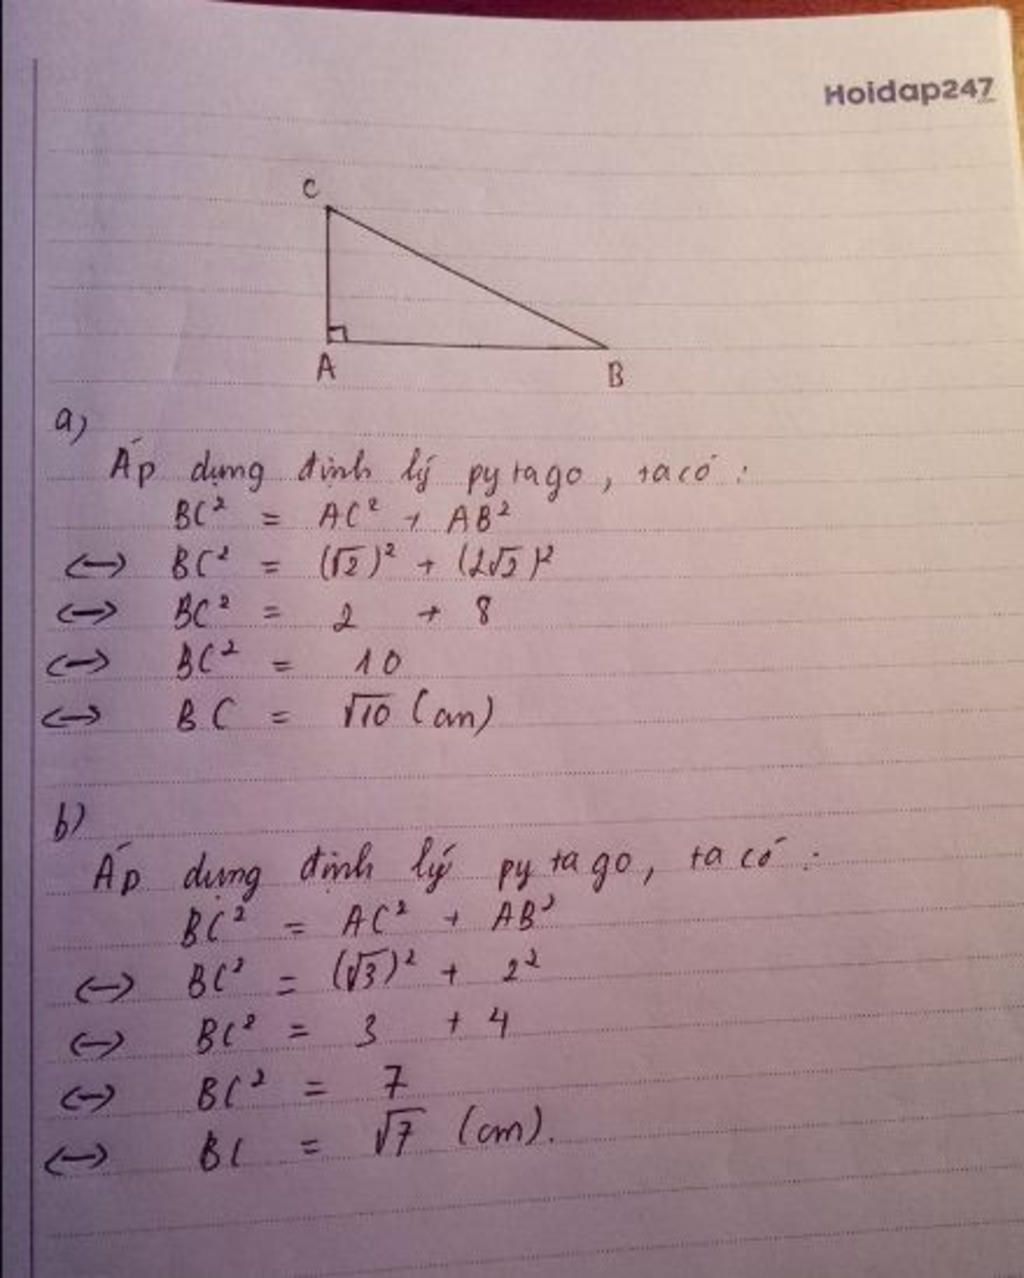 Hoidap247
C
A
B
a)
Áp dụng định lý pytago, ta có :
BC² = AC² + AB²
<-> BC² = (√2)² + (2√2)²
<-> BC² = 2 + 8
<-> BC² = 10
<-> BC = √10 (cm)
b)
Áp dụng định lý pytago, ta có :
BC² = AC² + AB²
<-> BC² = (√3)² + 2²
<-> BC² = 3 + 4
<-> BC² = 7
<-> BC = √7 (cm).